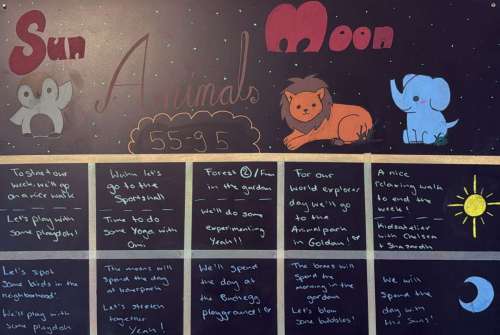 Sun
Moon
Animals
55-95
To start our
week, we'll go
on a nice walk
Let's play with
some playdoh!
Wuhu let's
go to the
Sportshall
Time to do
some Yoga with
Omi
Forest ② /
in the garden
We'll do some
experimenting
Yeah!!
For our
world explorer
day we'll go
to the
Animalpark
in Goldau!
A nice
relaxing walk
to end the
week!
Kidsatelier
with Carlsen
+
Let's spot
some birds in the
neighborhood!
We'll play with
some playdoh
The moons will
spend the day
at
Let's stretch
together
Yeah!
We'll spend
the day at
the
playground!
The bears will
spend the
morning in the
garden
Let's blow
some bubbles!
We will
spend the
day with
the Suns!